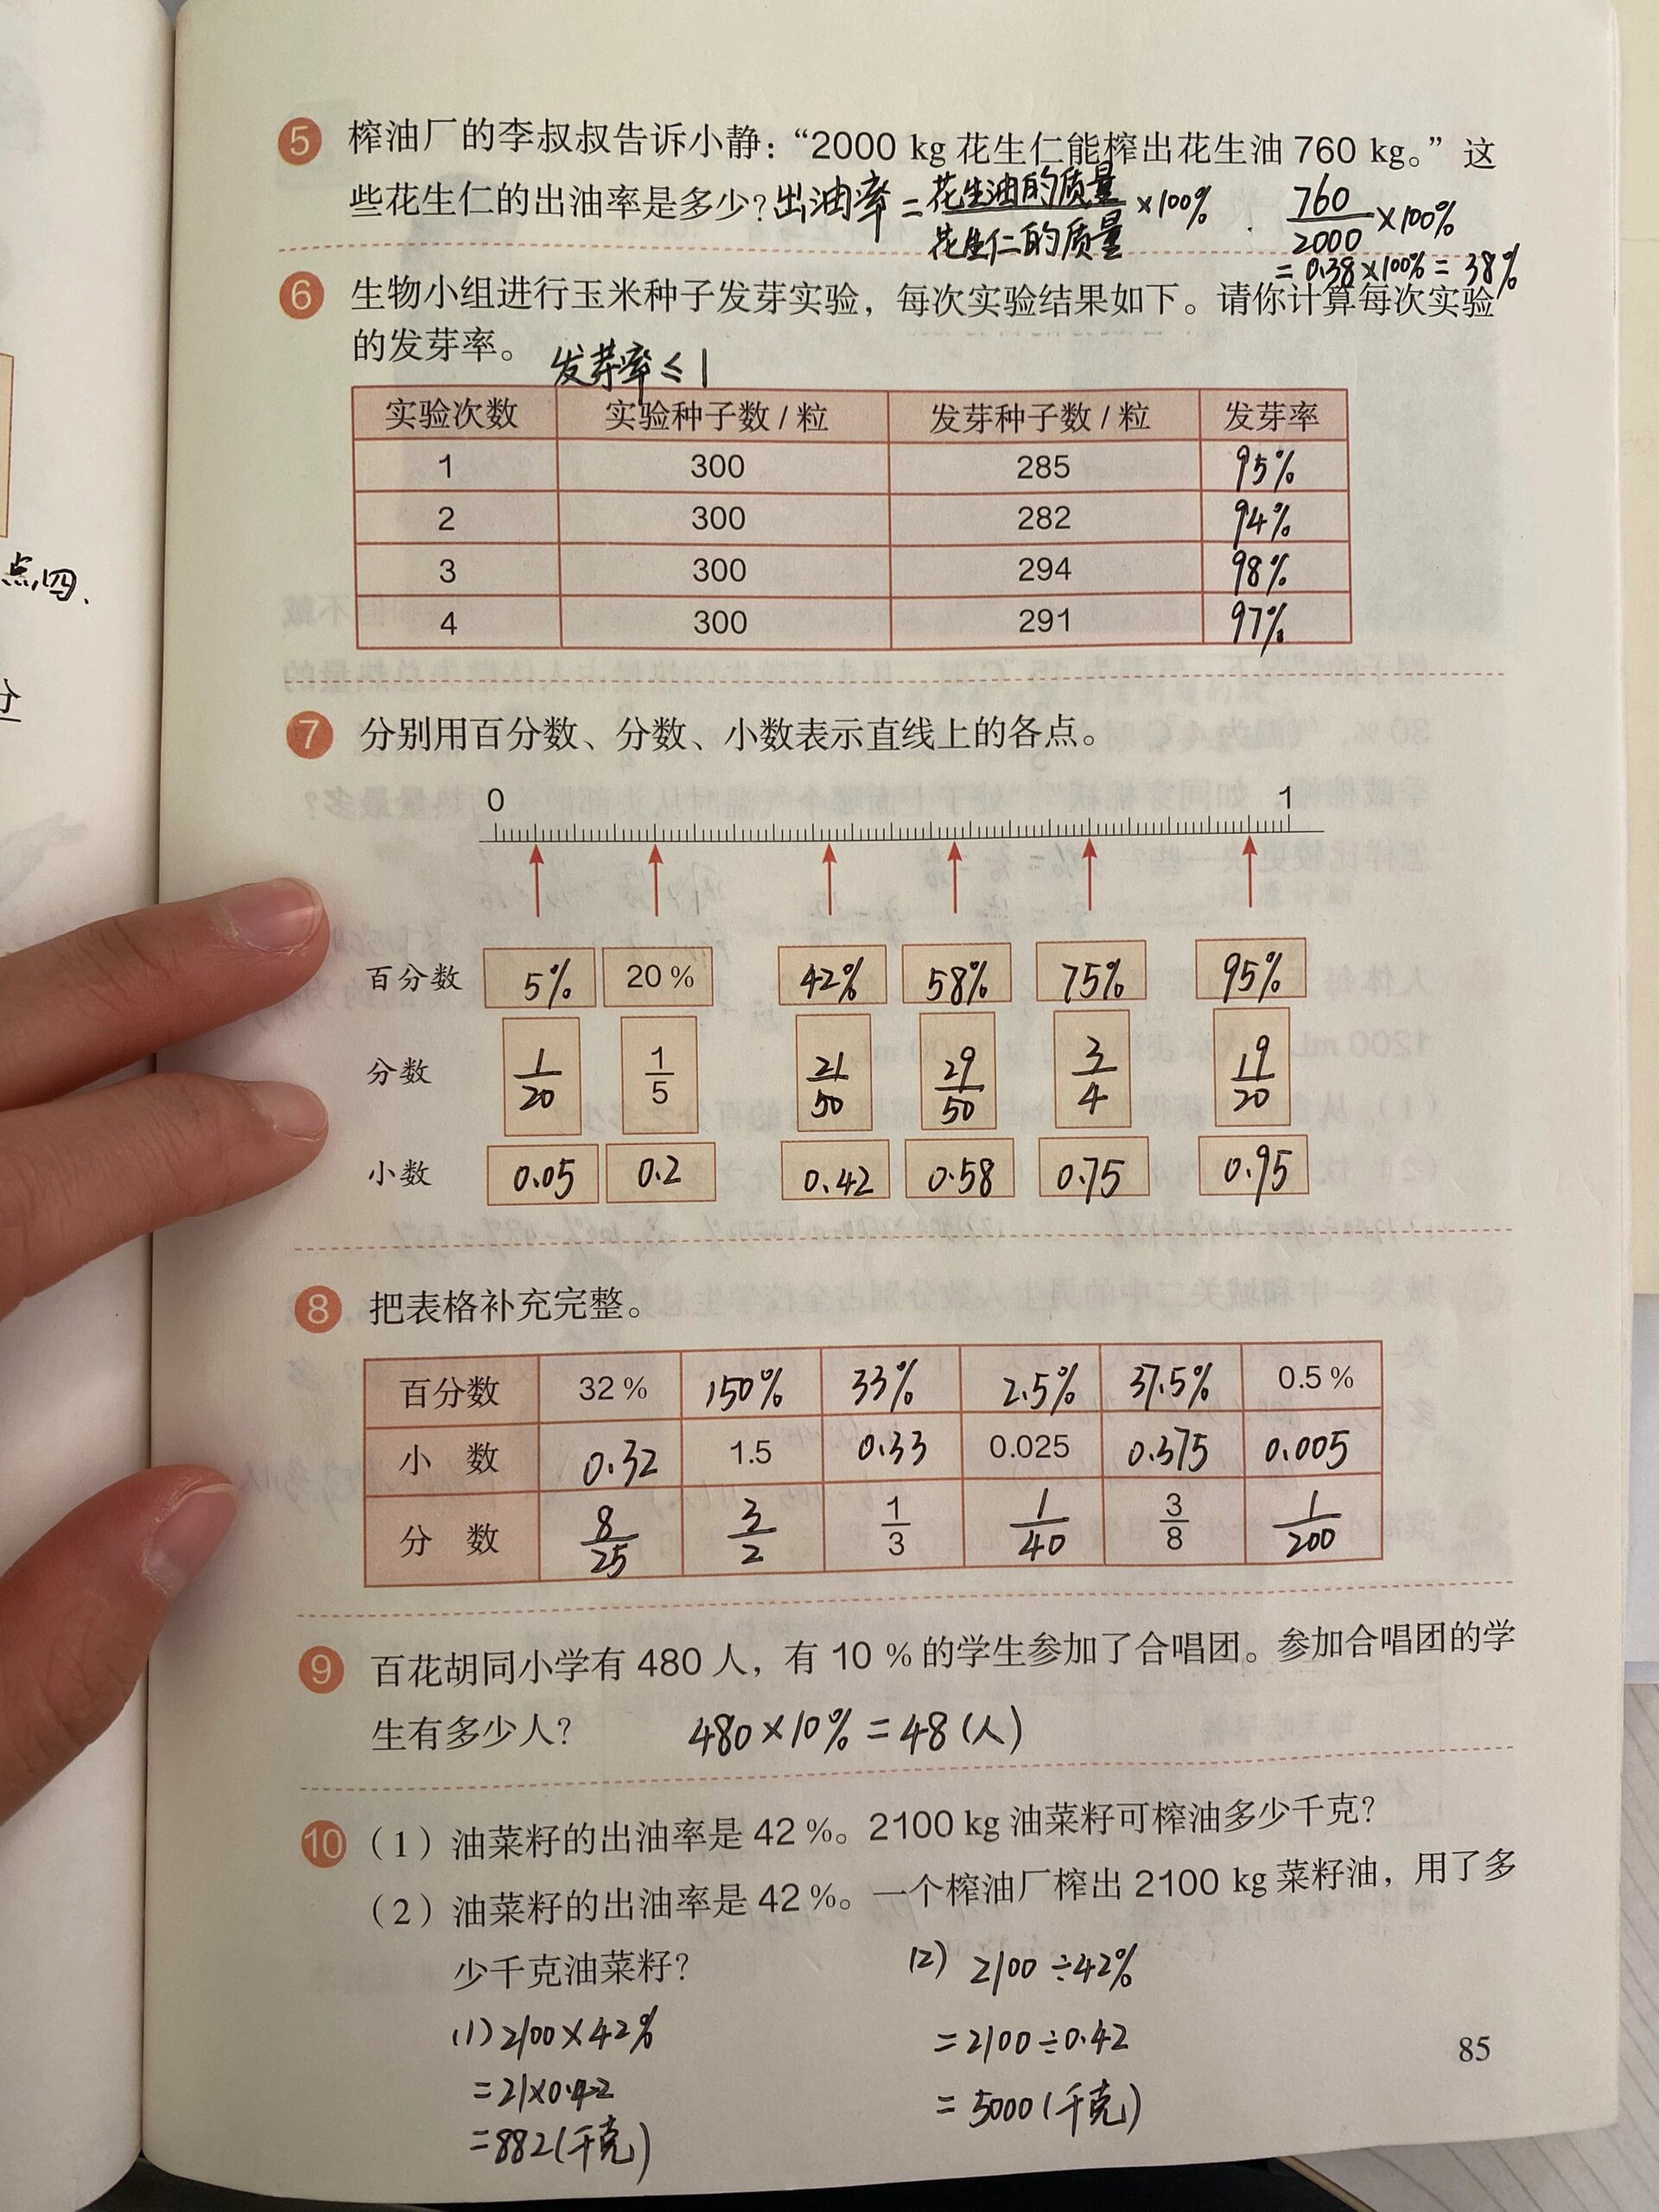 5 榨油厂的李叔叔告诉小静：“2000 kg 花生仁能榨出花生油 760 kg。”这
些花生仁的出油率是多少？ 出油率 = 花生油的质量/花生仁的质量 ×100% 760/2000 ×100%
= 0.38×100% = 38%
6 生物小组进行玉米种子发芽实验，每次实验结果如下。请你计算每次实验
的发芽率。 发芽率 ≤ 1
实验次数 实验种子数 / 粒 发芽种子数 / 粒 发芽率
1 300 285 95%
2 300 282 94%
3 300 294 98%
4 300 291 97%
7 分别用百分数、分数、小数表示直线上的各点。
0 1
百分数 5% 20 % 42% 58% 75% 95%
分数 1/20 1/5 21/50 29/50 3/4 19/20
小数 0.05 0.2 0.42 0.58 0.75 0.95
8 把表格补充完整。
百分数 32 % 150% 33% 2.5% 37.5% 0.5 %
小 数 0.32 1.5 0.33 0.025 0.375 0.005
分 数 8/25 3/2 1/3 1/40 3/8 1/200
9 百花胡同小学有 480 人，有 10 % 的学生参加了合唱团。参加合唱团的学
生有多少人？ 480×10% = 48（人）
10（1）油菜籽的出油率是 42 %。2100 kg 油菜籽可榨油多少千克？
（2）油菜籽的出油率是 42 %。一个榨油厂榨出 2100 kg 菜籽油，用了多
少千克油菜籽？
(1) 2100×42%
= 21×0.42
= 882（千克）
(2) 2100÷42%
= 2100÷0.42
= 5000（千克）
85
点四、